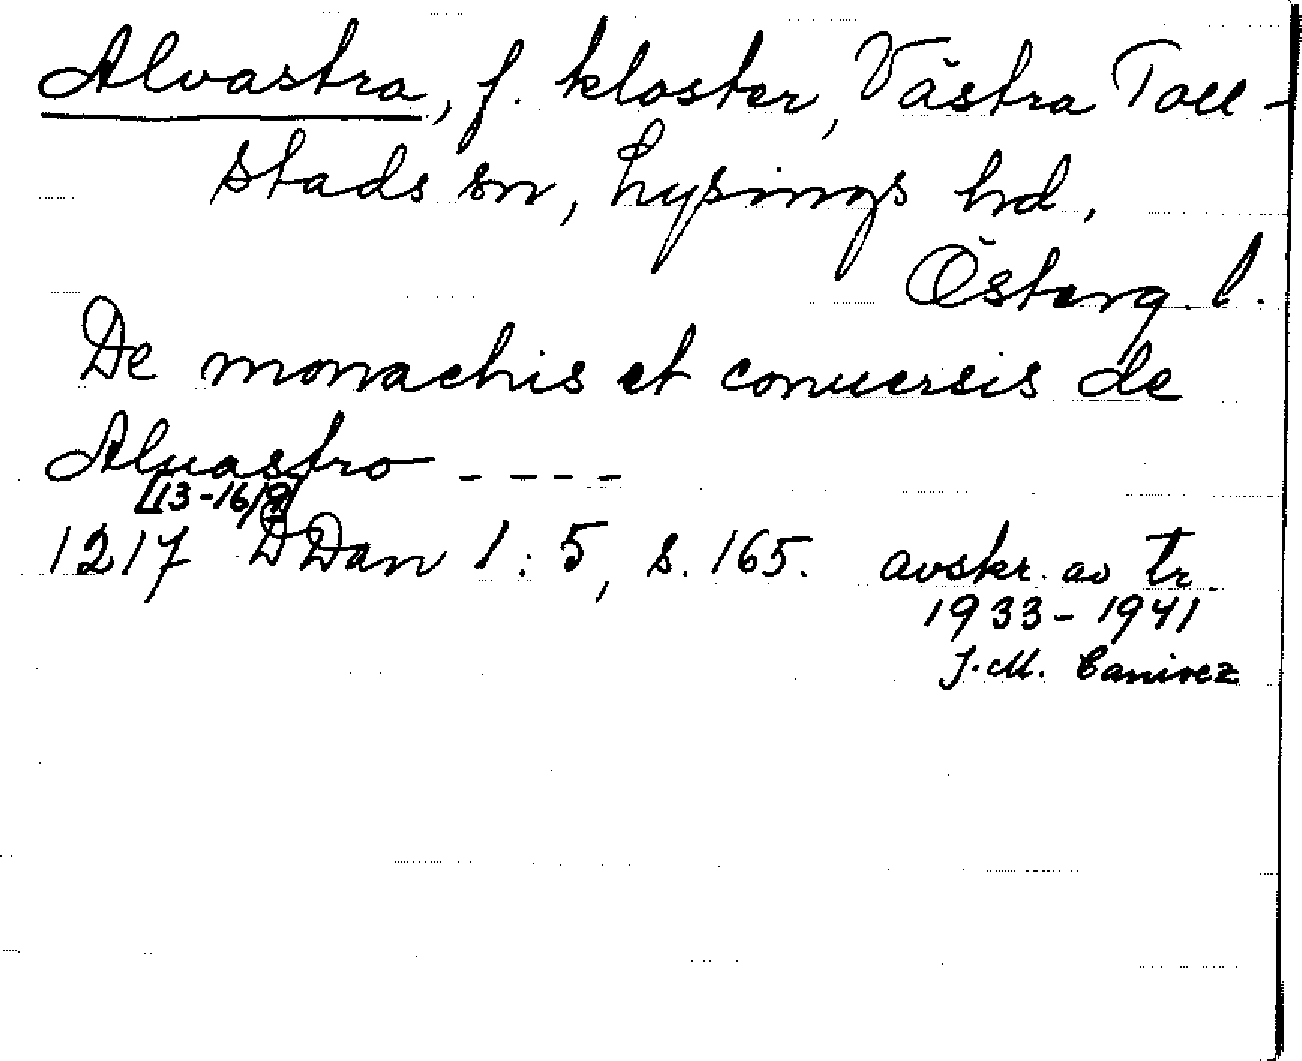 Alvastra, f. kloster, Västra Toll-
stads sn, Lysings hd,
Österg. l.
De monachis et conuersis de
Aluastro ----
[13-16/9]
1217 DDan 1:5, s. 165. avskr. av tr.
1933-1941
J.-M. Canivez